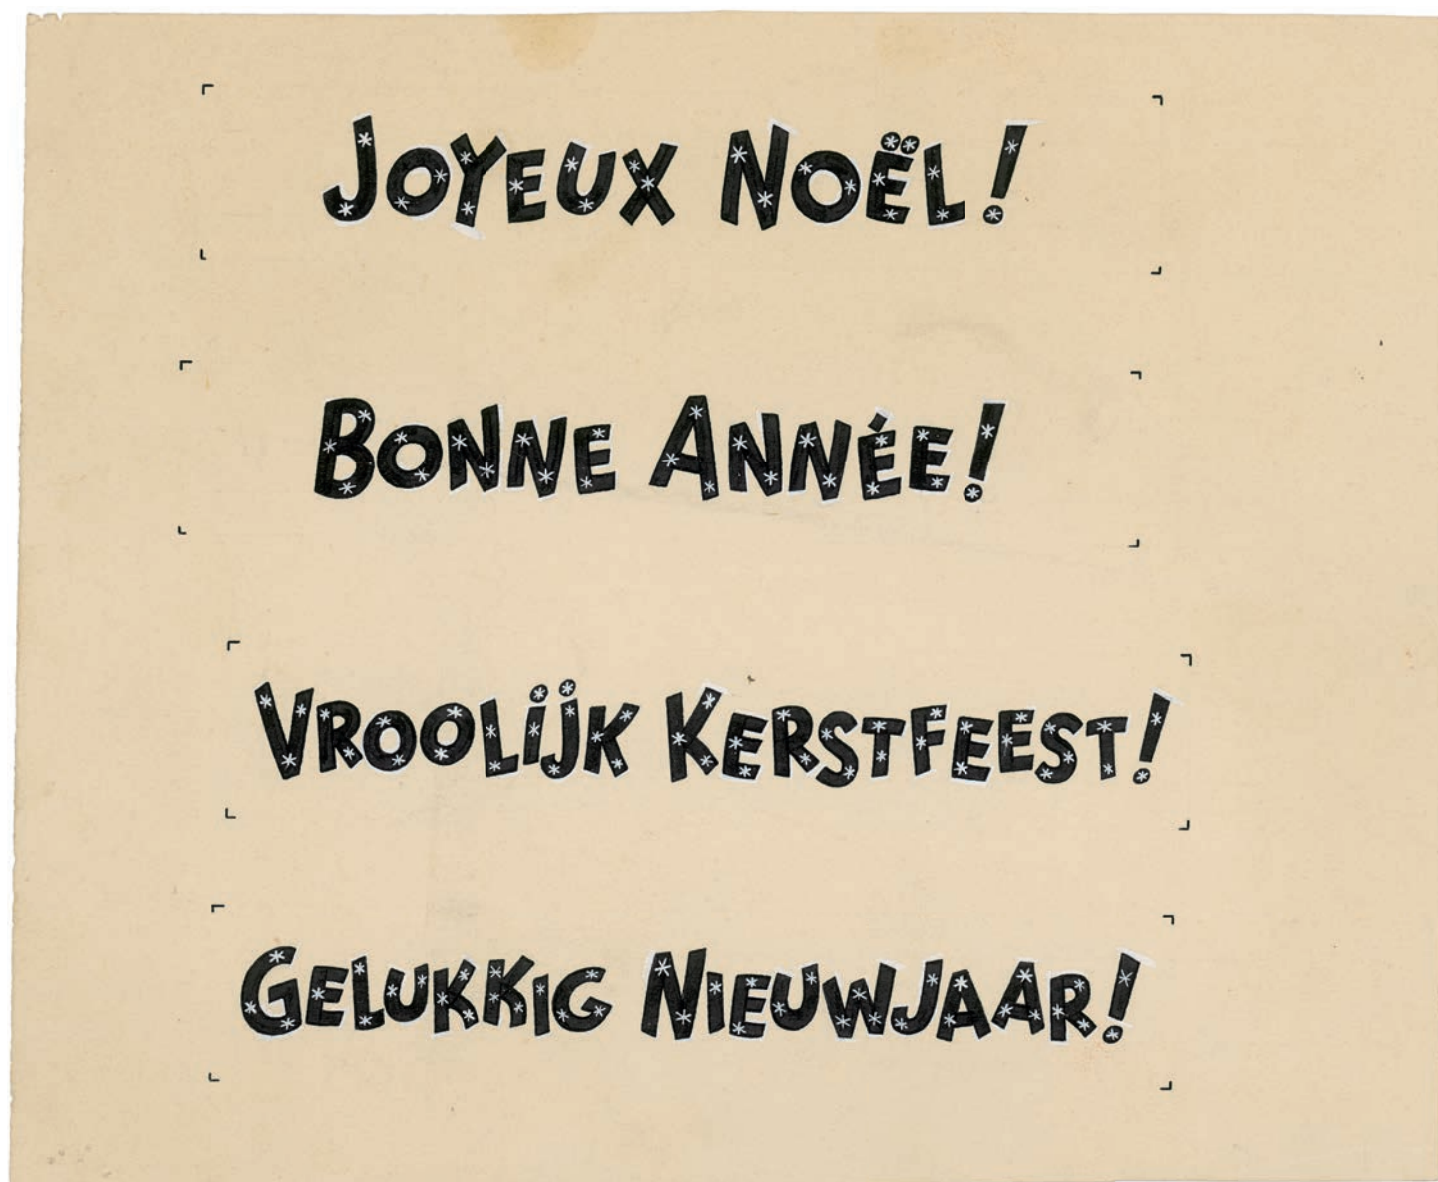 JOYEUX NOËL!
BONNE ANNÉE!
VROOLIJK KERSTFEEST!
GELUKKIG NIEUWJAAR!